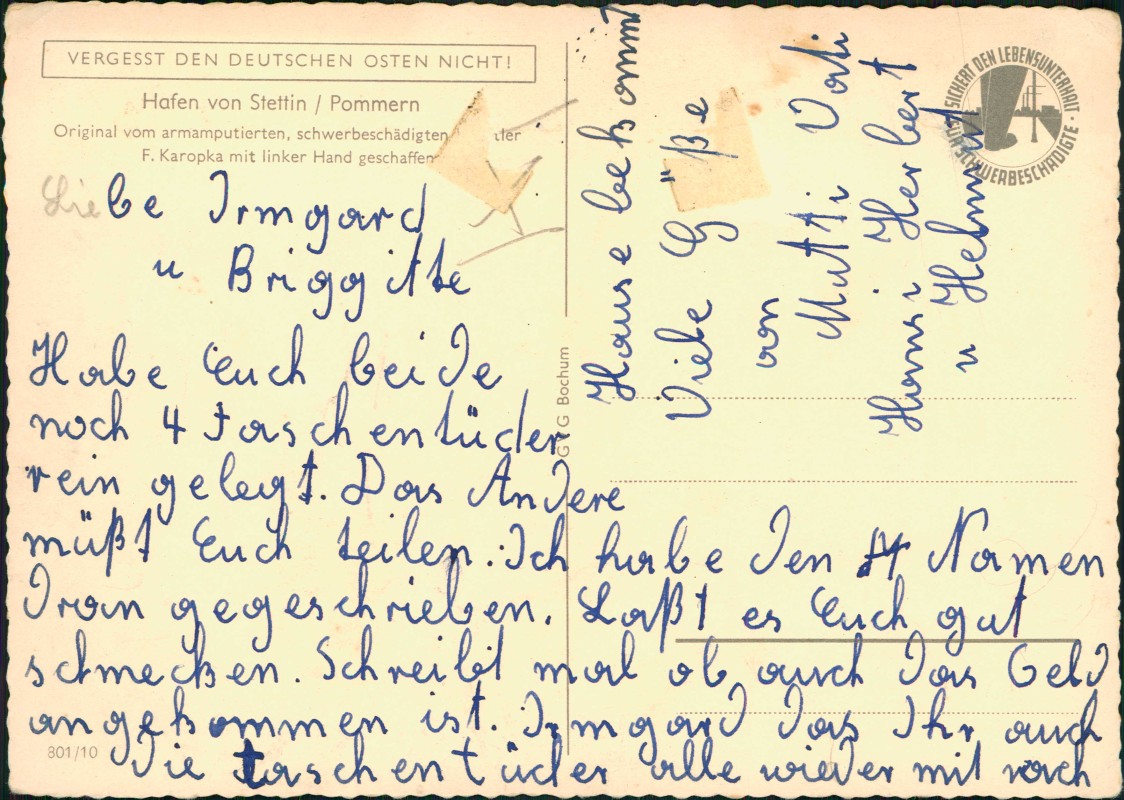 VERGESST DEN DEUTSCHEN OSTEN NICHT!
Hafen von Stettin / Pommern
Original vom armamputierten, schwerbeschädigten
F. Karopka mit linker Hand geschaffen
Liebe Irmgard
u Briggitte
Habe Euch beide
noch 4 Taschentücher
rein gelegt. Das Andere
müßt Euch teilen. Ich habe den Namen
dran gegeschrieben. Laßt es Euch gut
schmecken. Schreibt mal ob auch das Geld
angekommen ist. Irmgard das Ihr auch
die taschentücher alle wieder mit nach
Hause bekommt
Viele Grüße
von
Mutti Vati
Hansi Herbert
u Helmut
GVG Bochum
801/10
SICHERT DEN LEBENSUNTERHALT
FÜR SCHWERBESCHÄDIGTE